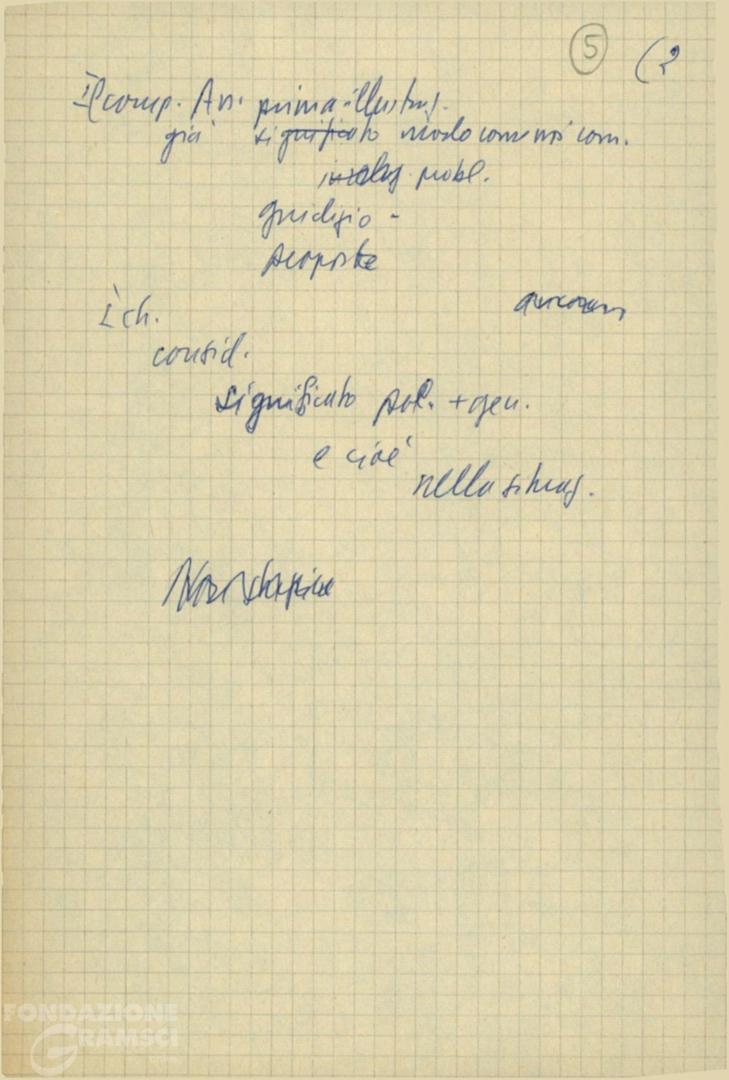 5 (2
Il comp. An. prima illustraz.
già significato modo come noi com.
probl.
giudizio -
proposte
È ch.
consid.
significato pol. + gen.
e cioè
nella situaz.
FONDAZIONE
GRAMSCI